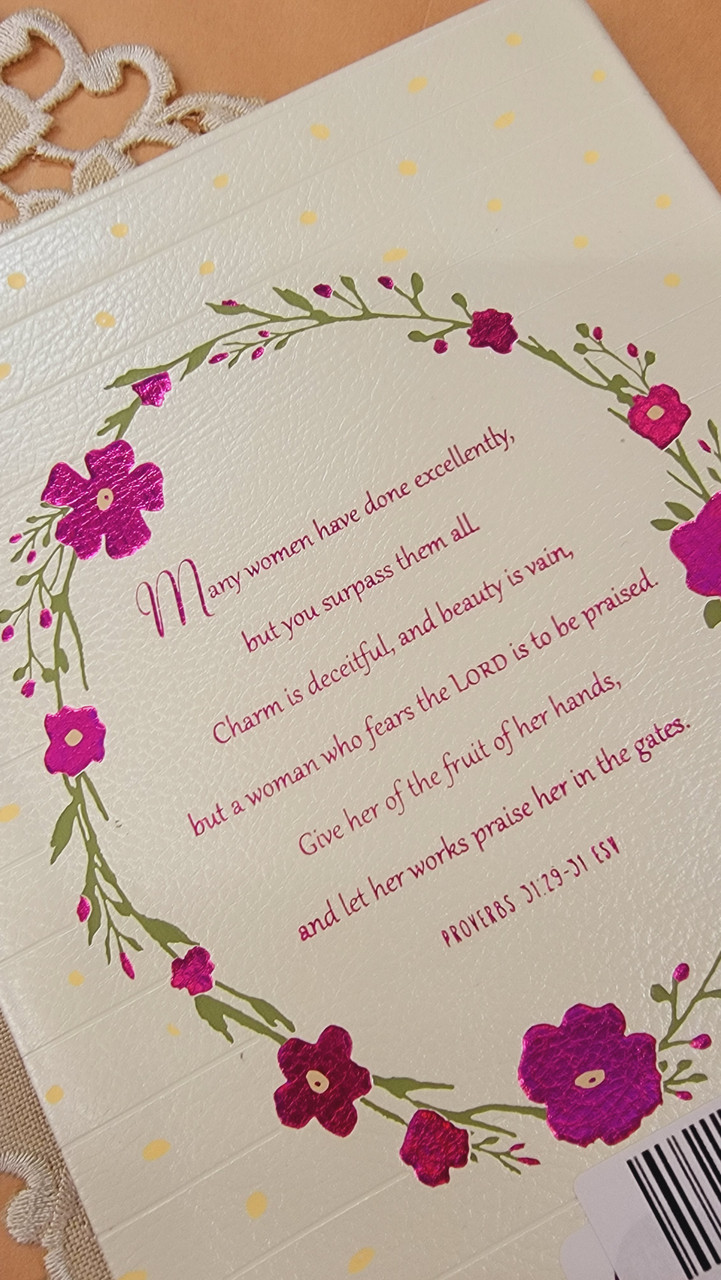 Many women have done excellently,
but you surpass them all.
Charm is deceitful, and beauty is vain,
but a woman who fears the LORD is to be praised.
Give her of the fruit of her hands,
and let her works praise her in the gates.
PROVERBS 31:29-31 ESV